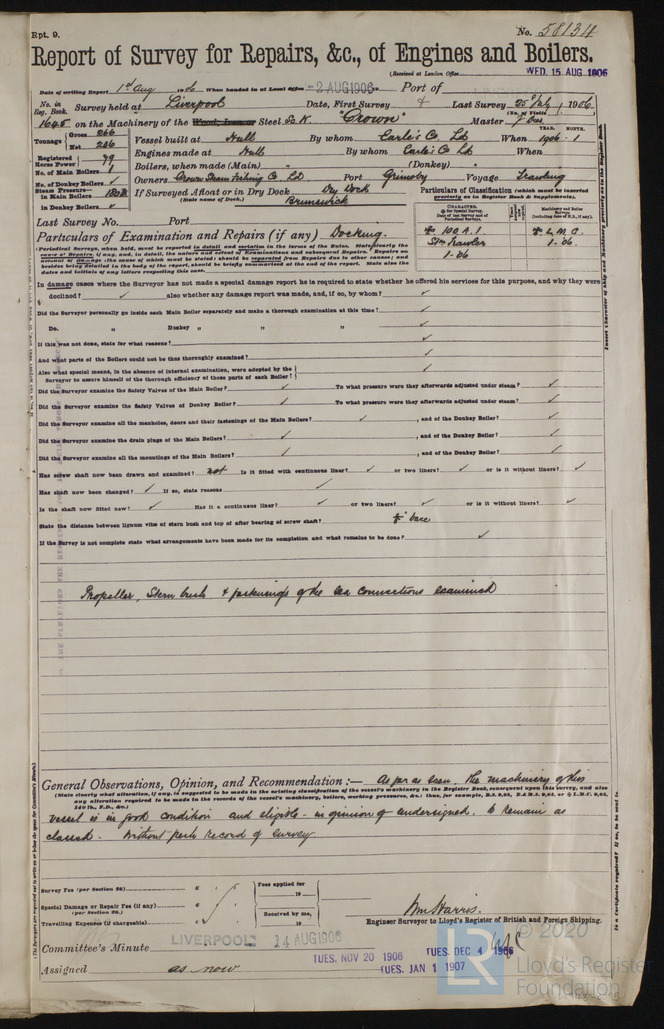 Rpt. 9.
No. 58134
Report of Survey for Repairs, &c., of Engines and Boilers.
(Received at London Office WED. 15 AUG. 1906
Date of writing Report 1st Aug 1906 When handed in at Local Office 2 AUG 1906 Port of
No. in Reg. Book. Survey held at Liverpool Date, First Survey Last Survey 25 July 1906
(No. of Visits 1)
1645 on the Machinery of the Wood, Iron or Steel Sc. K. "Crown" Master
Tonnage Gross 266 Net 206 Vessel built at Hull By whom Earle's Co. Ld When 1906 - 1
YEAR. MONTH.
Registered Horse Power 79 Engines made at Hull By whom Earle's Co. Ld When
No. of Main Boilers 1 Boilers, when made (Main) (Donkey)
No. of Donkey Boilers ✓ Owners Crown Steam Fishing Co. Ld Port Grimsby Voyage Trawling
Steam Pressure in Main Boilers If Surveyed Afloat or in Dry Dock Dry Dock
in Donkey Boilers ✓ (State name of Dock.) Brunswick
Particulars of Classification (which must be inserted precisely as in Register Book & Supplements).
Last Survey No. Port
CHARACTER.
100 A.1. L.M.C.
Stm Trawler 1-06.
1-06
Particulars of Examination and Repairs (if any) Docking.
In damage cases where the Surveyor has not made a special damage report he is required to state whether he offered his services for this purpose, and why they were
declined? ✓ also whether any damage report was made, and, if so, by whom? ✓
Did the Surveyor personally go inside each Main Boiler separately and make a thorough examination at this time? ✓
Do. „ Donkey „ „ „ ✓
If this was not done, state for what reasons? ✓
And what parts of the Boilers could not be thoroughly examined? ✓
Also what special means, in the absence of internal examination, were adopted by the
Surveyor to assure himself of the thorough efficiency of those parts of each Boiler? ✓
Did the Surveyor examine the Safety Valves of the Main Boiler? ✓ To what pressure were they afterwards adjusted under steam? ✓
Did the Surveyor examine the Safety Valves of Donkey Boiler? ✓ To what pressure were they afterwards adjusted under steam? ✓
Did the Surveyor examine all the manholes, doors and their fastenings of the Main Boilers? ✓, and of the Donkey Boiler? ✓
Did the Surveyor examine the drain plugs of the Main Boilers? ✓, and of the Donkey Boiler? ✓
Did the Surveyor examine all the mountings of the Main Boilers? ✓, and of the Donkey Boiler? ✓
Has screw shaft now been drawn and examined? not Is it fitted with continuous liner? ✓ or two liners? ✓ or is it without liners? ✓
Has shaft now been changed? ✓ If so, state reasons ✓
Is the shaft now fitted new? ✓ Has it a continuous liner? ✓ or two liners? ✓ or is it without liners? ✓
State the distance between lignum vitæ of stern bush and top of after bearing of screw shaft? bare
If the Survey is not complete state what arrangements have been made for its completion and what remains to be done? ✓
Propeller, Stern bush & fastenings of the sea connections examined
General Observations, Opinion, and Recommendation:— As far as seen, the machinery of this
(State clearly what alteration, if any, is suggested to be made in the existing classification of the vessel's machinery in the Register Book, consequent upon this survey, and also
any alteration required to be made in the records of the vessel's machinery, boilers, working pressures, &c.: thus, for example, B.S. 9,05, B.& M.S. 9,05, or L.M.C. 9,05,
140 lb., F.D., &c.)
vessel is in good condition and eligible - in opinion of undersigned, to remain as
classed. Without fresh record of survey
Survey Fee (per Section 29) £ Fees applied for 19
Special Damage or Repair Fee (if any) £
(per Section 29.) Received by me,
Travelling Expenses (if chargeable) £ 19
Wm Harris.
Engineer Surveyor to Lloyd's Register of British and Foreign Shipping.
Committee's Minute LIVERPOOL 14 AUG 1906
TUES. NOV 20 1906 TUES. DEC 4 1906
Assigned as now TUES. JAN 1 1907
© 2020
LR
Lloyd's Register
Foundation